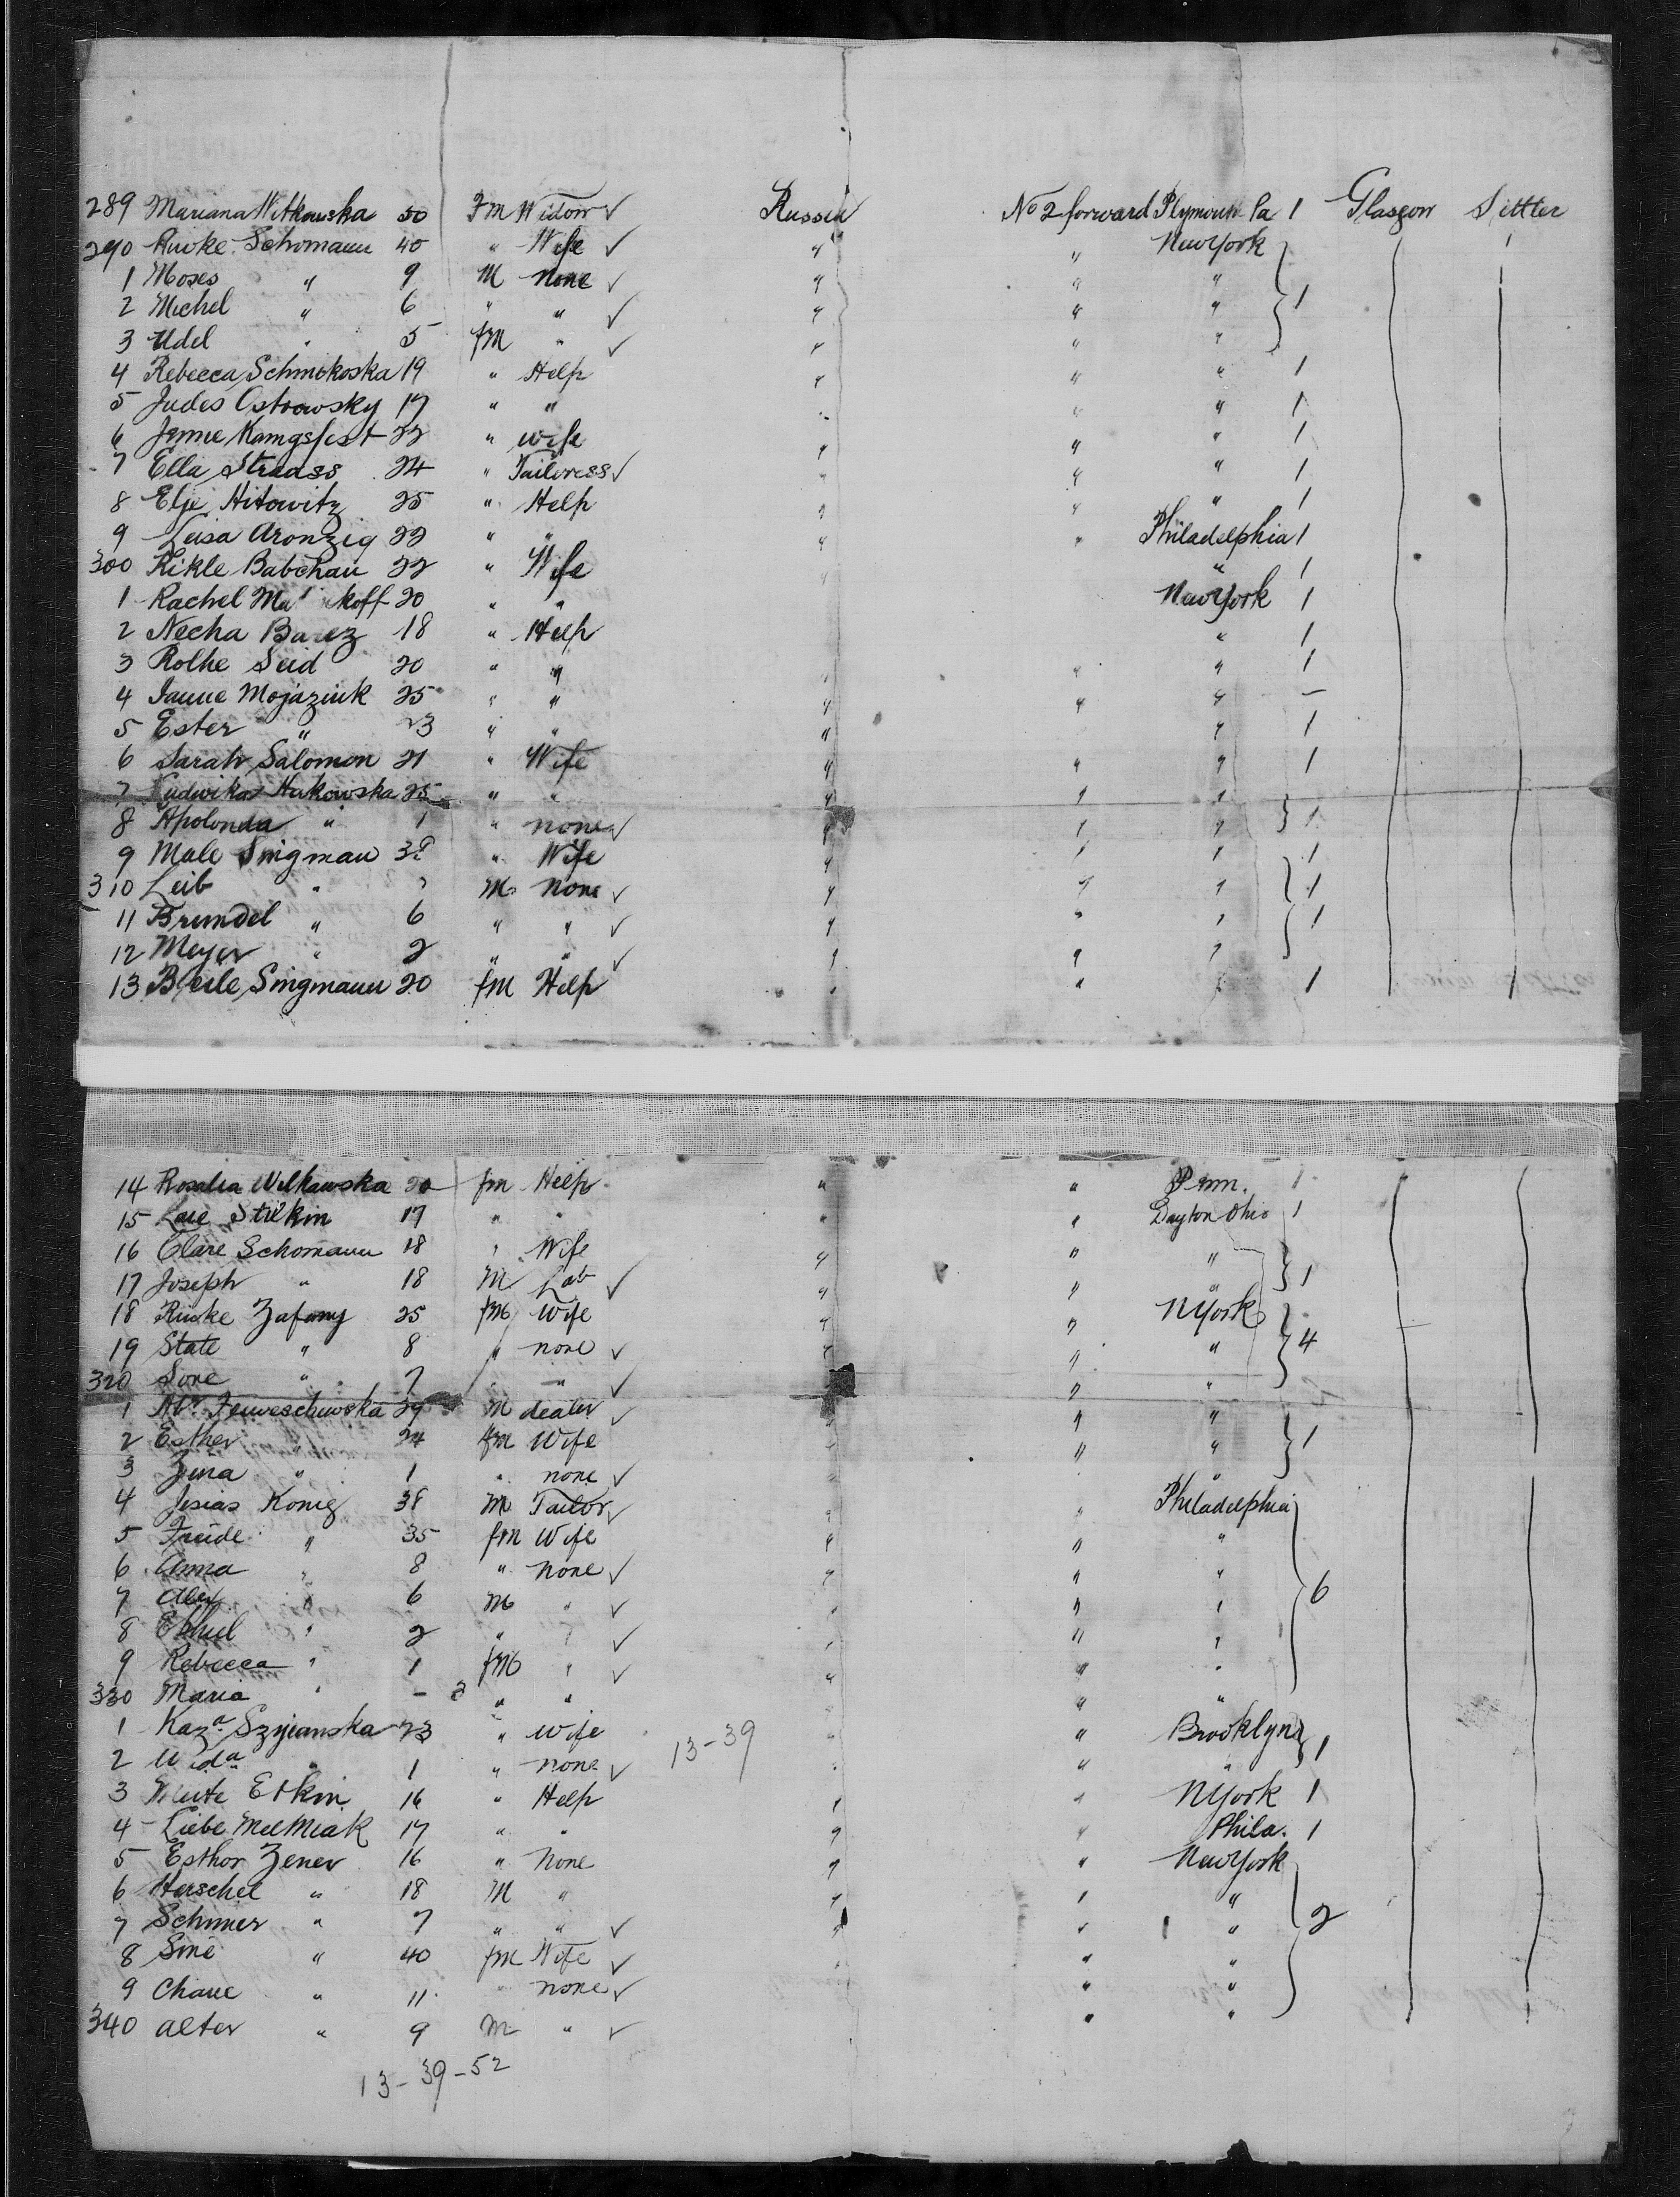 289 Mariana Witkowska 50 Fm Widow ✓ Russia No 2 forward Plymouth Pa 1 Glasgow Settler
290 Schomann 40 " Wife ✓ " " New York
1 Moses " 9 M none ✓ " " "
2 Michel " 6 " " ✓ " " " 1
3 Udel " 5 fm " ✓ " " "
4 Rebecca Schmokoska 19 " Help " " " 1
5 Judes Ostrowsky 17 " " " " " 1
6 Jennie 22 " wife " " " 1
7 Ella Strauss 24 " Tailoress ✓ " " " 1
8 Elje Hitowitz 25 " Help " " " 1
9 Leisa Aronzig 22 " " " " Philadelphia 1
300 Kikle Babchau 22 " Wife " " 1
1 Rachel 20 " " New York 1
2 Necha 18 " Help " 1
3 Rolhe Seid 20 " " " " " 1
4 Mojaziuk 25 " " " " " –
5 Ester " 23 " " " " 1
6 Sarah Salomon 21 " Wife " " " 1
7 Hakowska 25 " " " " "
8 Apolonda " 1 " none ✓ " " " 1
9 Male Singman " Wife " " " 1
310 Leib " M none ✓ " " " 1
11 Brundel " 6 " " ✓ " " " 1
12 Meyer " 2 " " ✓ " " "
13 Beile Singmann 20 fm Help " " " 1 1
14 Rosalia Wilkawska 20 fm Help " " Penn. 1
15 Stilkin 17 " " " " Dayton Ohio 1
16 Clare Schomann 18 " Wife " " "
17 Joseph " 18 M Lab ✓ " " " 1
18 Zafany 25 fm Wife " " N York
19 State " 8 " none ✓ " " " 4
320 Sore " 7 " " ✓ " "
1 M dealer ✓ " "
2 Esther " 24 fm Wife " " " 1
3 Zina " 1 " none ✓ " "
4 Jesias Konig 38 M Tailor ✓ " " Philadelphia
5 Freide " 35 fm Wife " " "
6 Anna " 8 " none ✓ " " "
7 " 6 M " ✓ " " " 6
8 " 2 " " ✓ " " "
9 Rebecca " 1 fm " ✓ " " "
330 Maria " – 3 " " " "
1 Kaza Szyjanska 23 " Wife 13-39 " " Brooklyn
2 " 1 " none ✓ " " " 1
3 Etkin 16 " Help " " N York 1
4 Liebe 17 " " " " Phila. 1
5 Esthor Zener 16 " None " " New York
6 Herschel " 18 M " " " "
7 Schmer " 7 " " ✓ " " " 2
8 Sine " 40 fm Wife ✓ " " "
9 Chaue " 11 " none ✓ " "
340 Alter " 9 M " ✓ " "
13-39-52